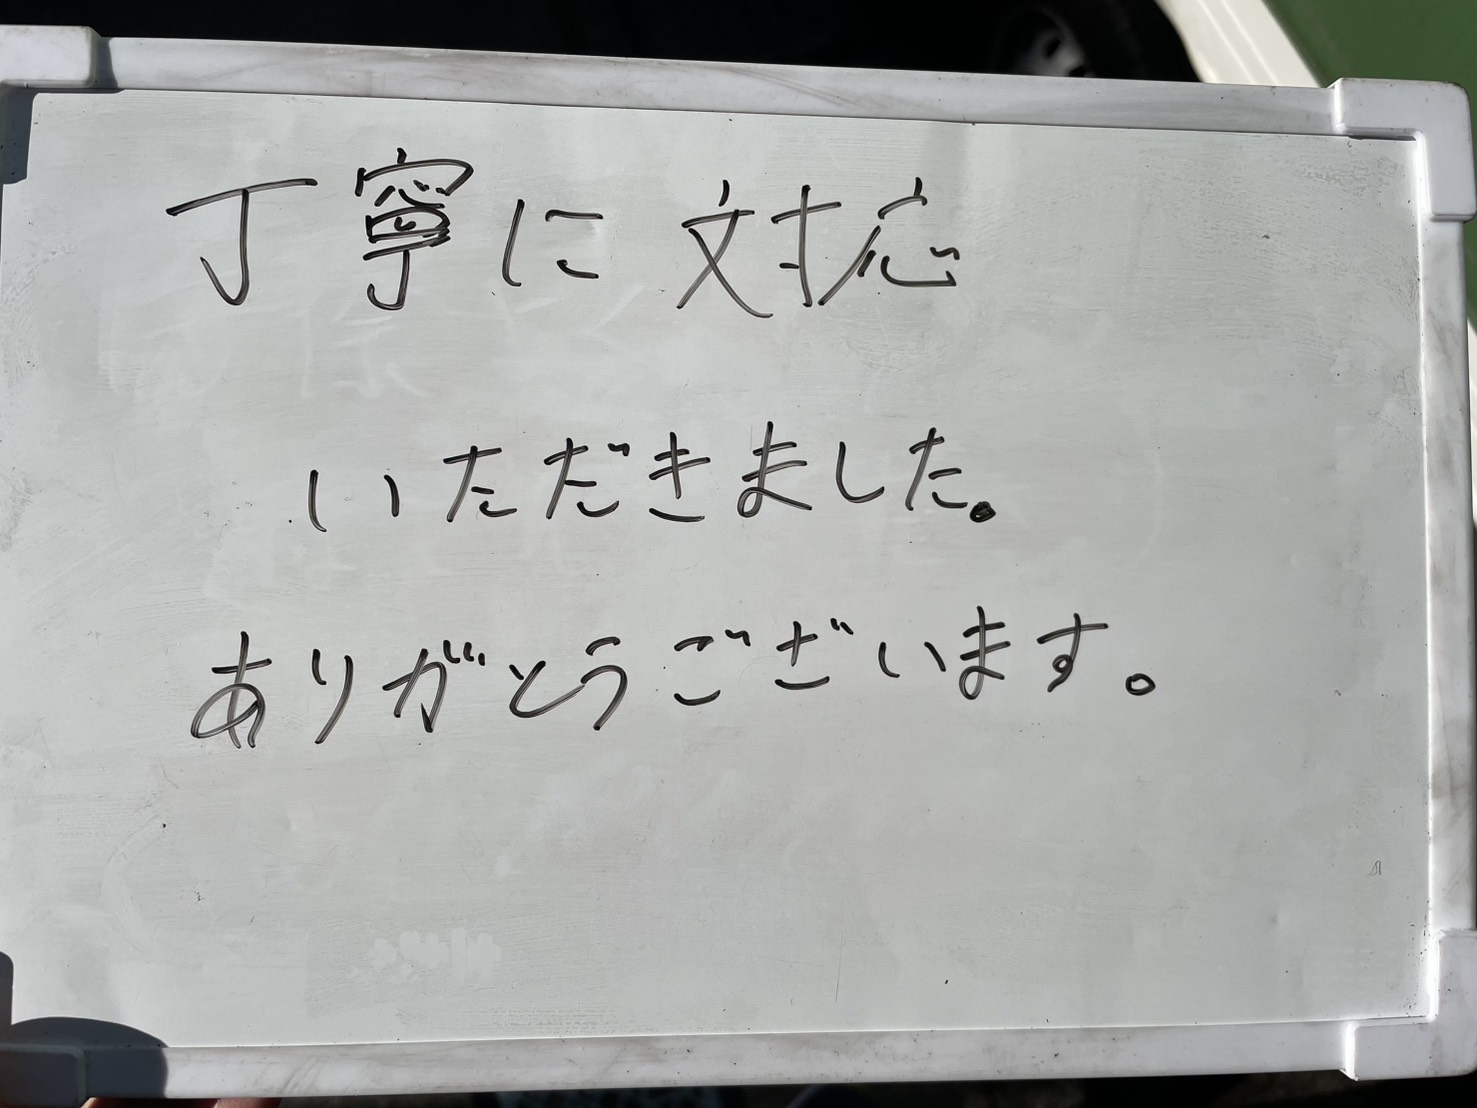 丁寧に対応
いただきました。
ありがとうございます。